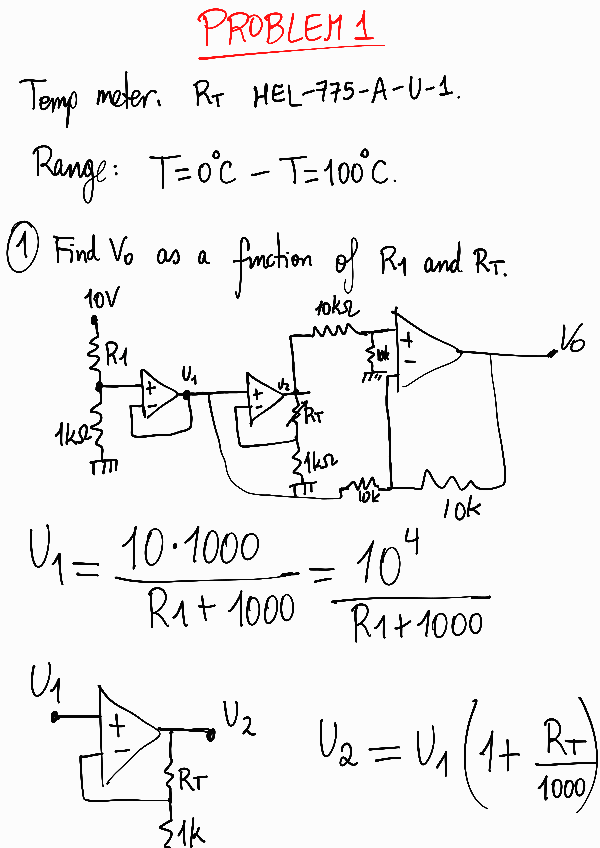 PROBLEM 1
Temp meter. RT HEL-775-A-U-1.
Range: T=0°C - T=100°C.
1 Find Vo as a function of R1 and RT.
10V
10kΩ
R1
U1
U2
+
-
+
-
+
-
Vo
RT
1kΩ
1kΩ
10k
10k
U1 = 10·1000 / R1+1000 = 10^4 / R1+1000
U1
U2
+
-
RT
1k
U2 = U1 (1 + RT/1000)